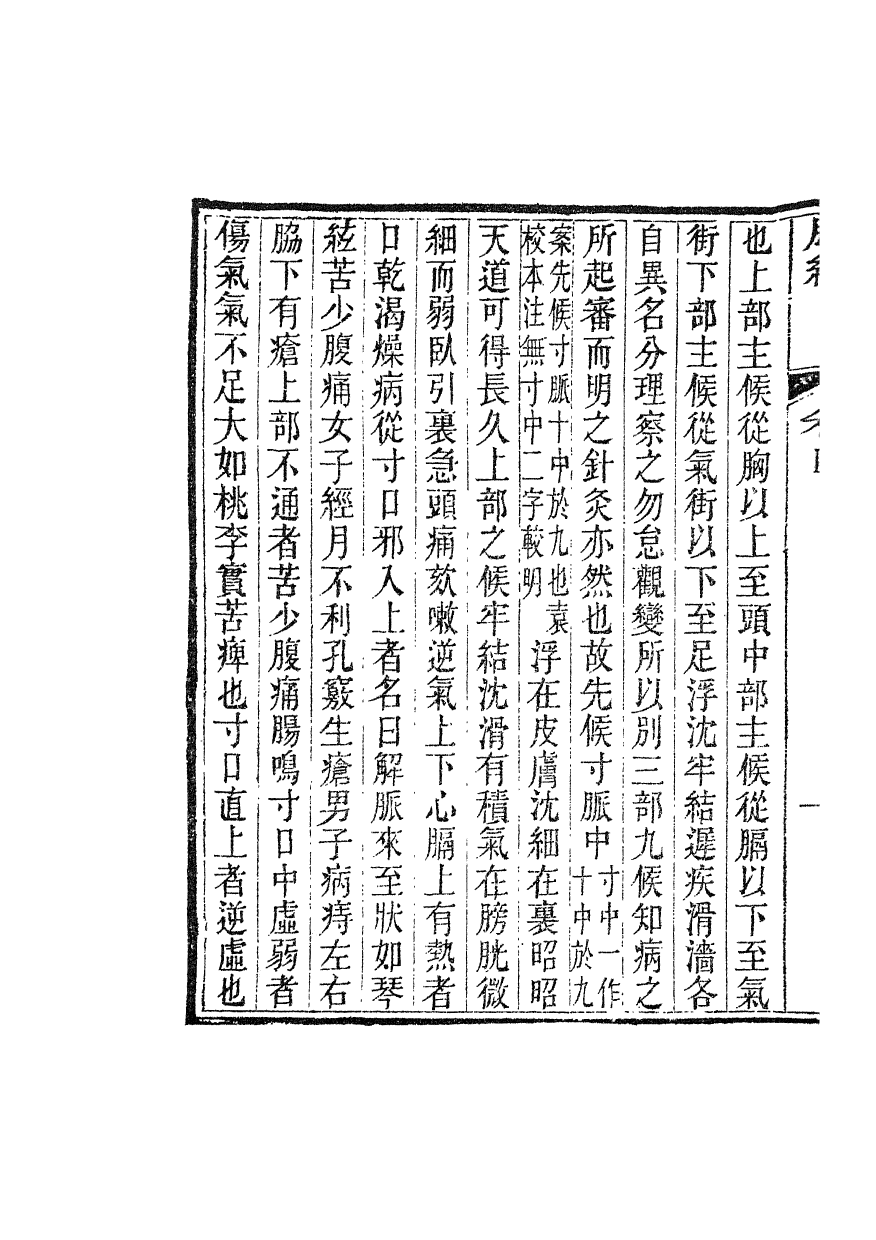 也上部主候從胸以上至頭中部主候從膈以下至氣
街下部主候從氣街以下至足浮沈牢結遲疾滑濇各
自異名分理察之勿怠觀變所以別三部九候知病之
所起審而明之針灸亦然也故先候寸脈中寸中一作十中於九
案先候寸脈十中於九也袁校本注無寸中二字較明浮在皮膚沈細在裏昭昭
天道可得長久上部之候牢結沈滑有積氣在膀胱微
細而弱臥引裏急頭痛欬嗽逆氣上下心膈上有熱者
口乾渴燥病從寸口邪入上者名曰解脈來至狀如琴
絃苦少腹痛女子經月不利孔竅生瘡男子病痔左右
脇下有瘡上部不通者苦少腹痛腸鳴寸口中虛弱者
傷氣氣不足大如桃李實苦痺也寸口直上者逆虛也